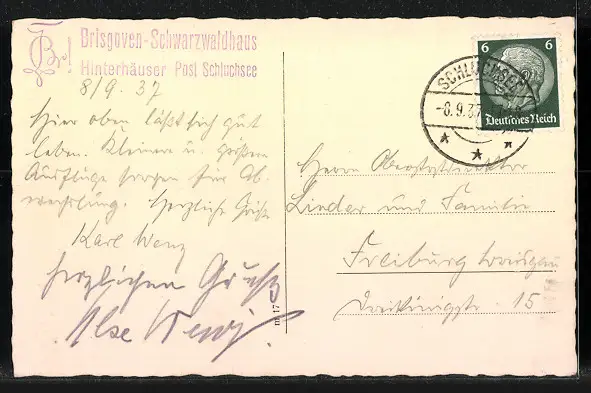 Br!
Brisgoven-Schwarzwaldhaus
Hinterhäuser Post Schluchsee
8/9. 37
Hier oben läßt sich gut
leben. Kleinere u. größere
Ausflüge sorgen für Ab-
wechslung. Herzliche Grüße
Karl Wenz
herzlichen Gruß
Ilse Wenz.
6 6
Deutsches Reich
SCHLUCHSEE
-8.9.37
Herrn Oberpostdirektor
Linder und Familie
Freiburg Breisgau
Dreikönigstr. 15